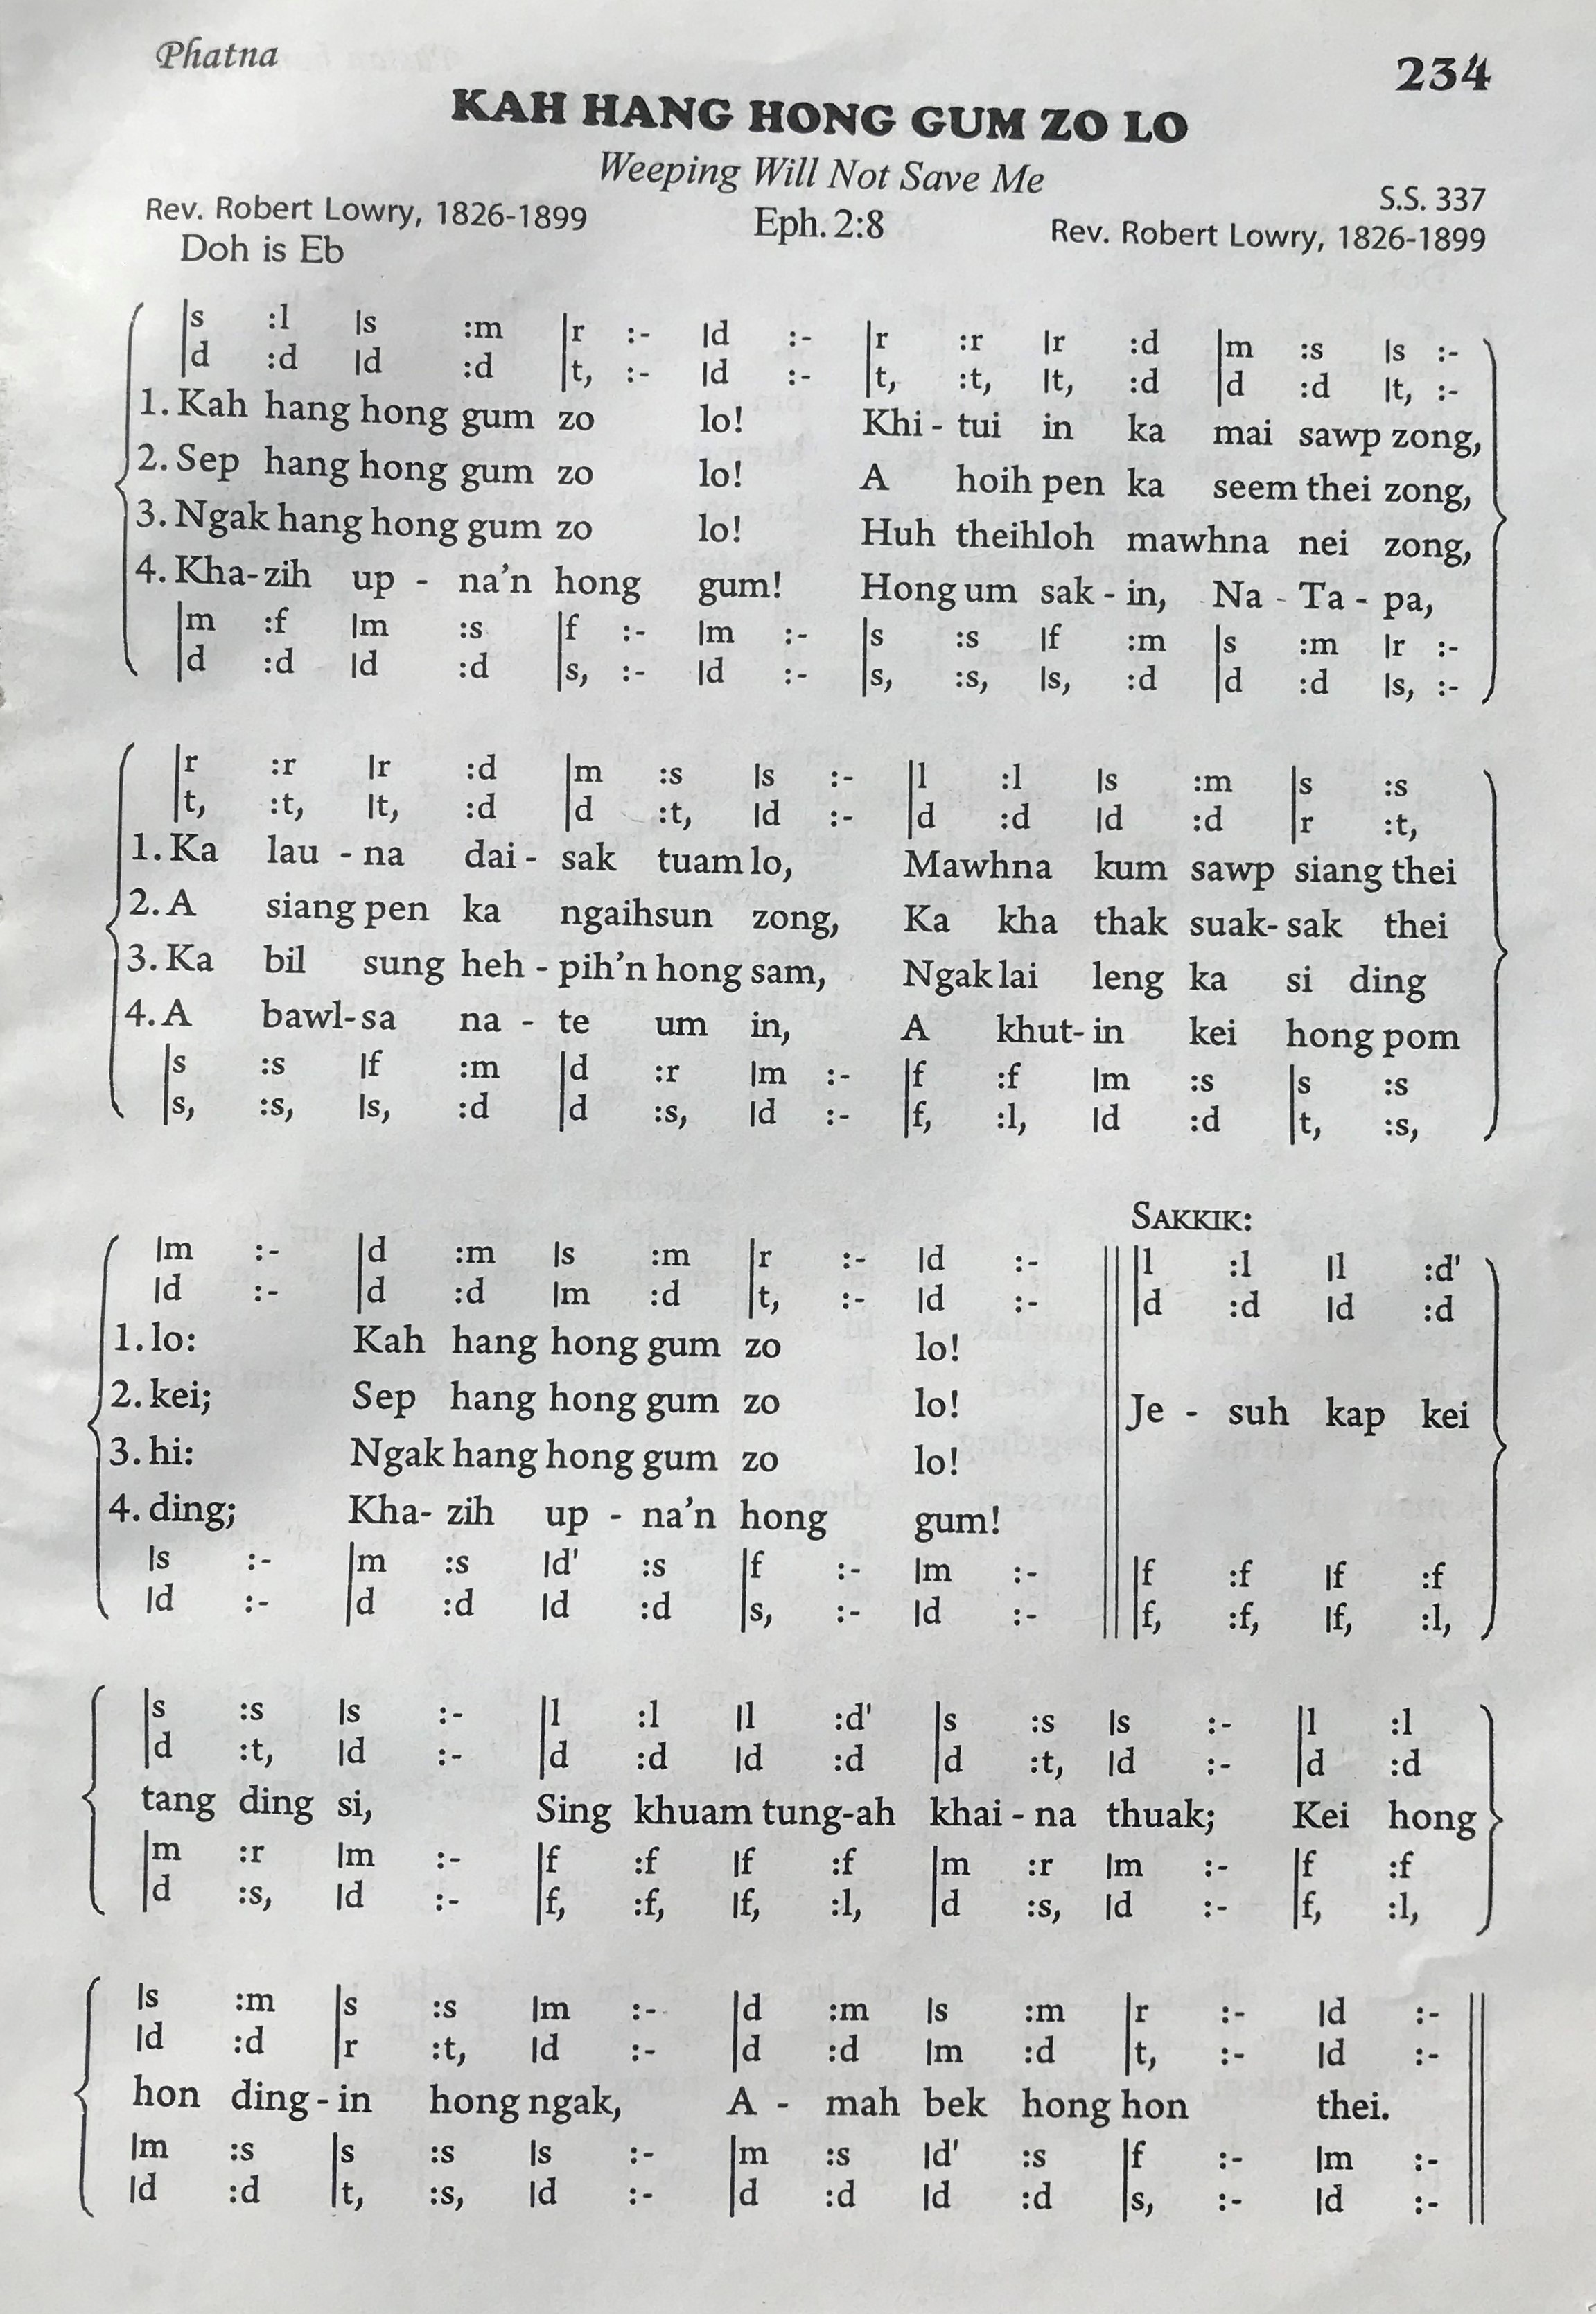 Phatna
234
KAH HANG HONG GUM ZO LO
Weeping Will Not Save Me
S.S. 337
Rev. Robert Lowry, 1826-1899 Eph. 2:8 Rev. Robert Lowry, 1826-1899
Doh is Eb
|s :l |s :m |r :- |d :- |r :r |r :d |m :s |s :-
|d :d |d :d |t, :- |d :- |t, :t, |t, :d |d :d |t, :-
1. Kah hang hong gum zo lo! Khi - tui in ka mai sawp zong,
2. Sep hang hong gum zo lo! A hoih pen ka seem thei zong,
3. Ngak hang hong gum zo lo! Huh theihloh mawhna nei zong,
4. Kha-zih up - na'n hong gum! Hong um sak - in, Na - Ta - pa,
|m :f |m :s |f :- |m :- |s :s |f :m |s :m |r :-
|d :d |d :d |s, :- |d :- |s, :s, |s, :d |d :d |s, :-
|r :r |r :d |m :s |s :- |l :l |s :m |s :s
|t, :t, |t, :d |d :t, |d :- |d :d |d :d |r :t,
1. Ka lau - na dai - sak tuam lo, Mawhna kum sawp siang thei
2. A siang pen ka ngaihsun zong, Ka kha thak suak- sak thei
3. Ka bil sung heh - pih'n hong sam, Ngak lai leng ka si ding
4. A bawl-sa na - te um in, A khut- in kei hong pom
|s :s |f :m |d :r |m :- |f :f |m :s |s :s
|s, :s, |s, :d |d :s, |d :- |f, :l, |d :d |t, :s,
SAKKIK:
|m :- |d :m |s :m |r :- |d :- |l :l |l :d'
|d :- |d :d |m :d |t, :- |d :- |d :d |d :d
1. lo: Kah hang hong gum zo lo!
2. kei; Sep hang hong gum zo lo! Je - suh kap kei
3. hi: Ngak hang hong gum zo lo!
4. ding; Kha- zih up - na'n hong gum!
|s :- |m :s |d' :s |f :- |m :- |f :f |f :f
|d :- |d :d |d :d |s, :- |d :- |f, :f, |f, :l,
|s :s |s :- |l :l |l :d' |s :s |s :- |l :l
|d :t, |d :- |d :d |d :d |d :t, |d :- |d :d
tang ding si, Sing khuam tung-ah khai - na thuak; Kei hong
|m :r |m :- |f :f |f :f |m :r |m :- |f :f
|d :s, |d :- |f, :f, |f, :l, |d :s, |d :- |f, :l,
|s :m |s :s |m :- |d :m |s :m |r :- |d :-
|d :d |r :t, |d :- |d :d |m :d |t, :- |d :-
hon ding - in hong ngak, A - mah bek hong hon thei.
|m :s |s :s |s :- |m :s |d' :s |f :- |m :-
|d :d |t, :s, |d :- |d :d |d :d |s, :- |d :-